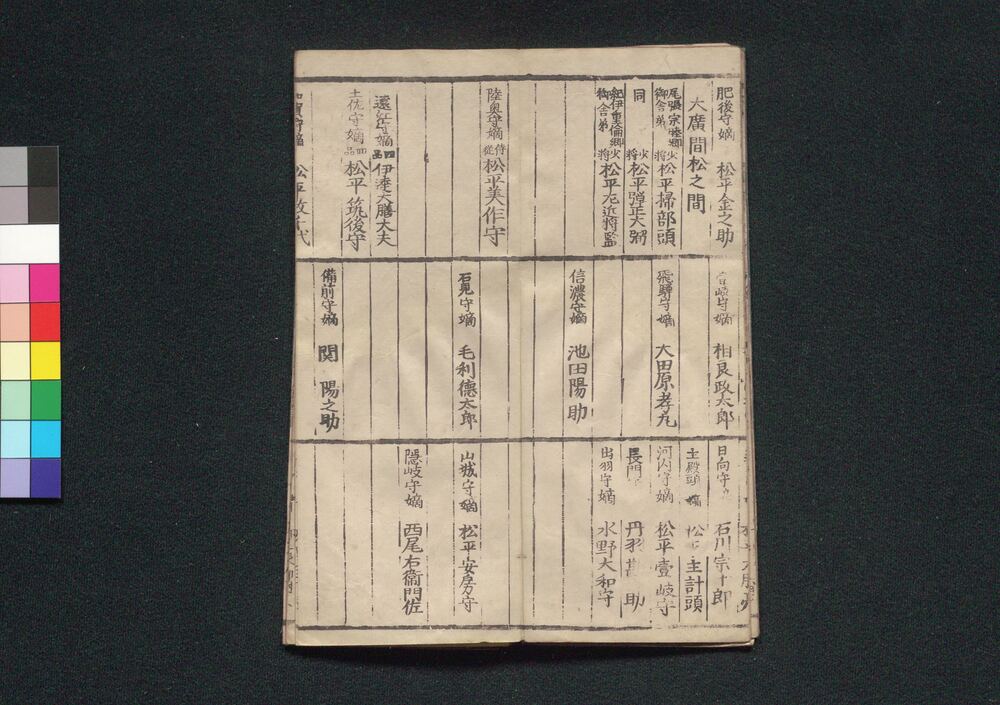 肥後守嫡 松平金之助
大廣間松之間
尾張宗睦卿御舎弟 少将 松平掃部頭
同 少将 松平弾正大弼
紀伊重倫卿御舎弟 少将 松平左近将監
陸奥守嫡 侍従 松平美作守
遠江守嫡 四品 伊達大膳大夫
土佐守嫡 四品 松平筑後守
壹岐守嫡 相良政太郎
飛騨守嫡 大田原孝丸
信濃守嫡 池田陽助
石見守嫡 毛利德太郎
備前守嫡 関 陽之助
日向守 石川宗十郎
主殿頭嫡 松平主計頭
河内守嫡 松平壹岐守
長門 丹羽 助
出羽守嫡 水野大和守
山城守嫡 松平安房守
隱岐守嫡 西尾右衞門佐